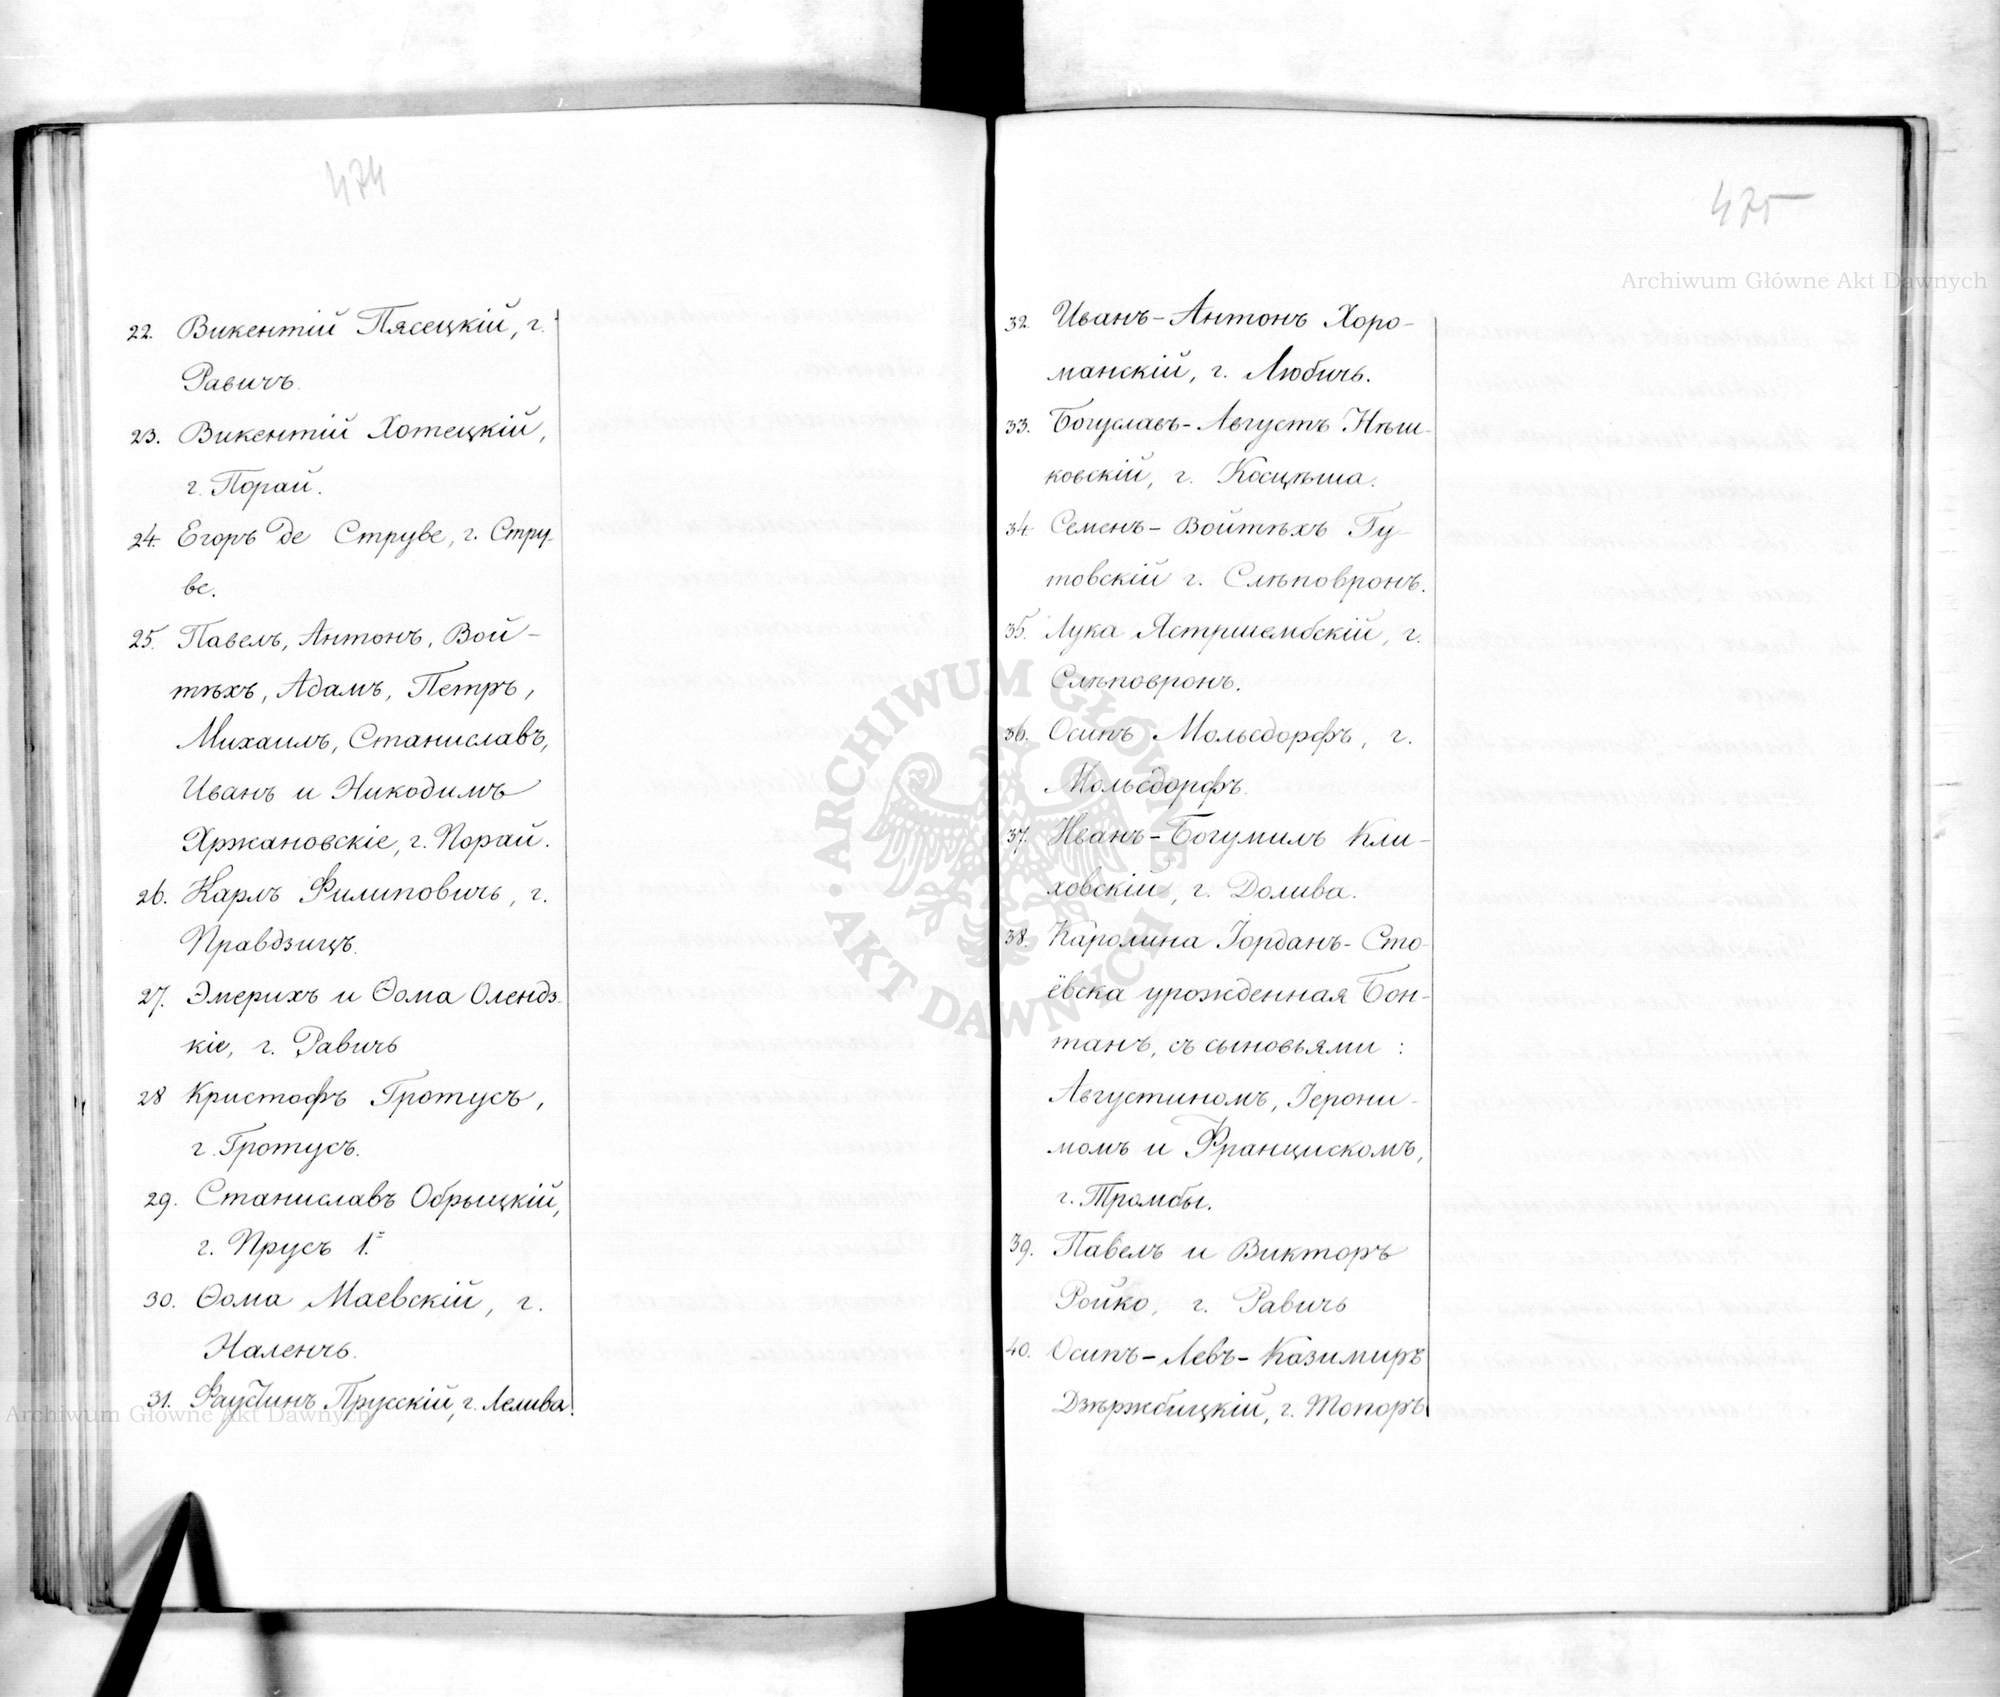 474
22. Викентій Пясецкій, г.
Равичъ.
23. Викентій Хотецкій,
г. Порай.
24. Егоръ де Струве, г. Стру-
ве.
25. Павелъ, Антонъ, Вой-
тѣхъ, Адамъ, Петръ,
Михаилъ, Станиславъ,
Иванъ и Никодимъ
Хржановскіе, г. Порай.
26. Карлъ Филиповичъ, г.
Правдзицъ.
27. Эмерихъ и Ѳома Олендз-
кіе, г. Равичъ
28 Кристофъ Гротусъ,
г. Гротусъ.
29. Станиславъ Обрыцкій,
г. Прусъ 1.
30. Ѳома Маевскій, г.
Наленчъ.
31. Фаустинъ Прусскій, г. Лелива.
475
32. Иванъ-Антонъ Хоро-
манскій, г. Любичъ.
33. Богуславъ-Августъ Нѣш-
ковскій, г. Косцѣша.
34. Семенъ-Войтѣхъ Гу
товскій г. Слѣповронъ.
35. Лука Ястршембскій, г.
Слѣповронъ.
36. Осипъ Мольсдорфъ, г.
Мольсдорфъ.
37. Иванъ-Богумилъ Кли-
ховскій, г. Долива.
38. Каролина Іорданъ-Сто-
ёвска урожденная Бон-
танъ, съ сыновьями:
Августиномъ, Іерони-
момъ и Францискомъ,
г. Тромбы.
39. Павелъ и Викторъ
Ройко, г. Равичъ
40. Осипъ-Левъ-Казимиръ
Дзѣржбицкій, г. Топоръ
Archiwum Główne Akt Dawnych
ARCHIWUM GŁÓWNE AKT DAWNYCH
Archiwum Główne Akt Dawnych